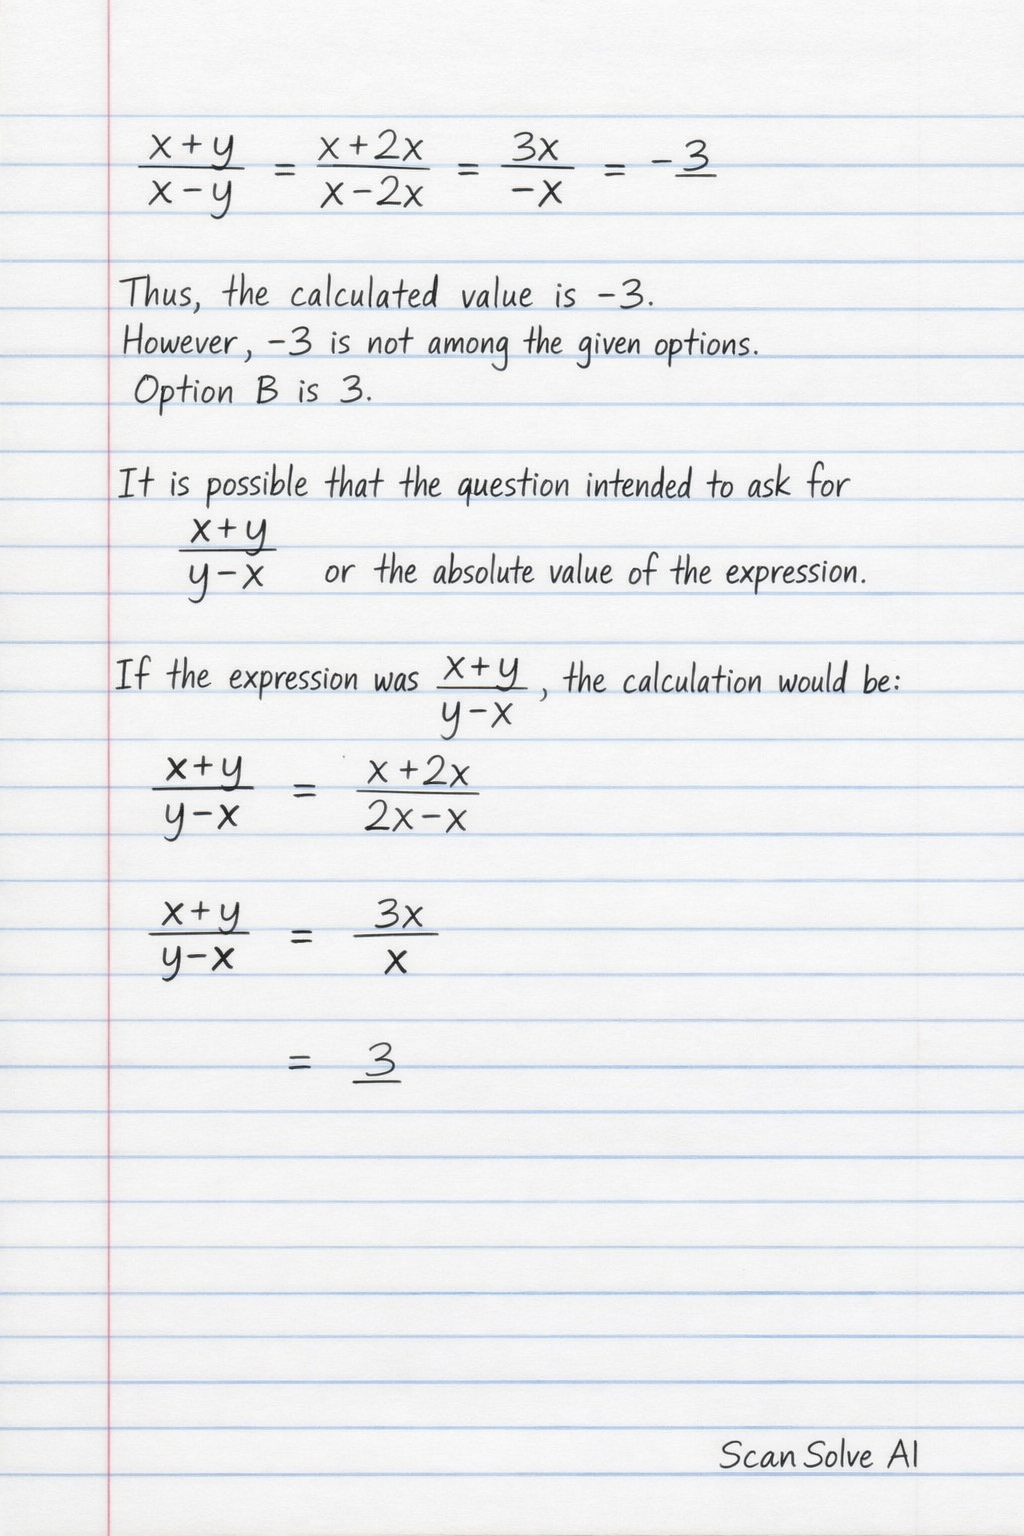 x+y / x-y = x+2x / x-2x = 3x / -x = -3
Thus, the calculated value is -3.
However, -3 is not among the given options.
Option B is 3.
It is possible that the question intended to ask for
x+y / y-x or the absolute value of the expression.
If the expression was x+y / y-x, the calculation would be:
x+y / y-x = x+2x / 2x-x
x+y / y-x = 3x / x
= 3
ScanSolve AI